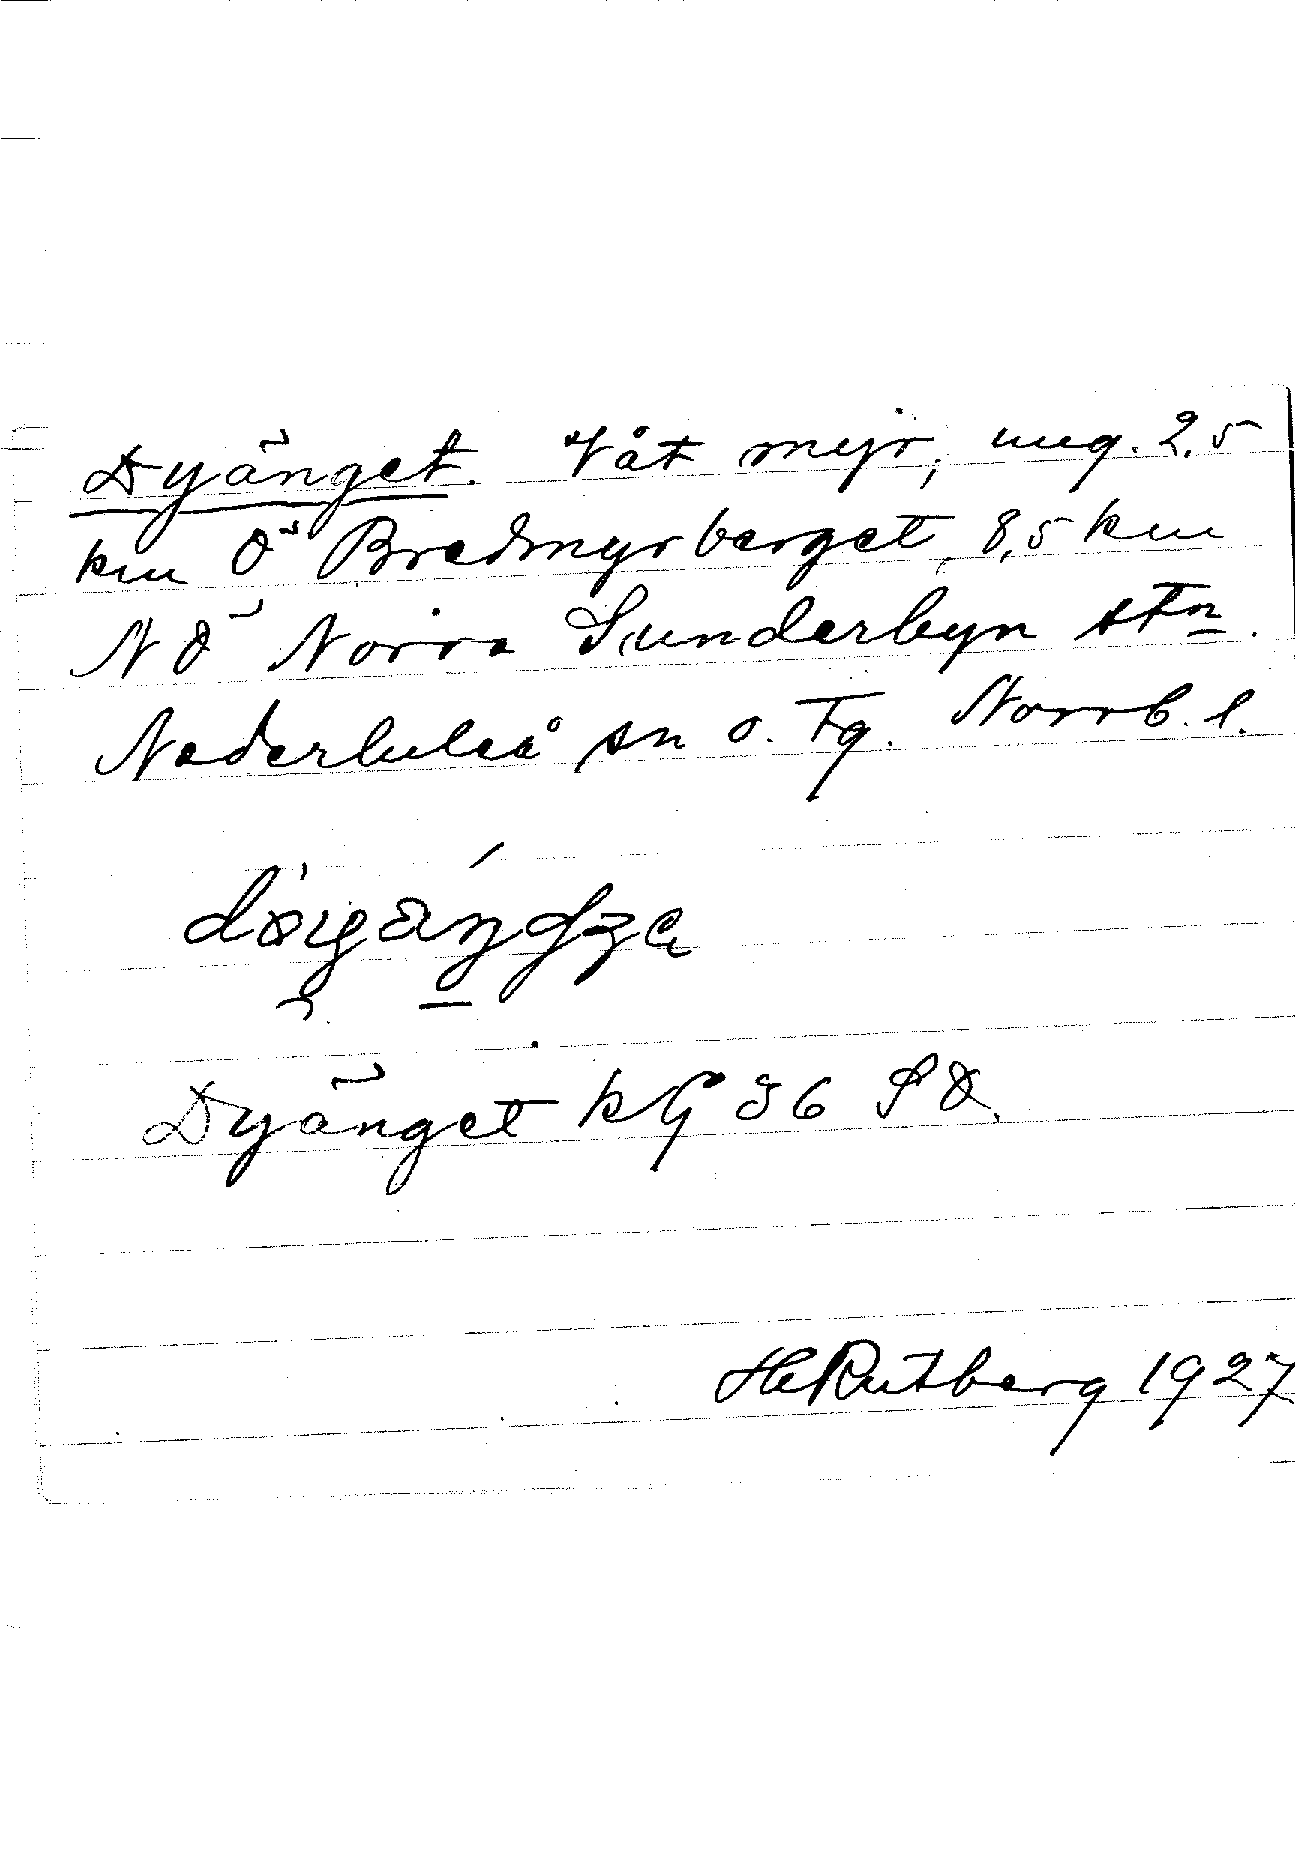 Dyänget. Våt myr, ung. 2,5
km Ö Bredmyrberget, 8,5 km
NÖ Norra Sunderbyn stn.
Nederluleå sn o. tg. Norrb. l.
Dyänget kG 36 SO.
HeRutberg 1927